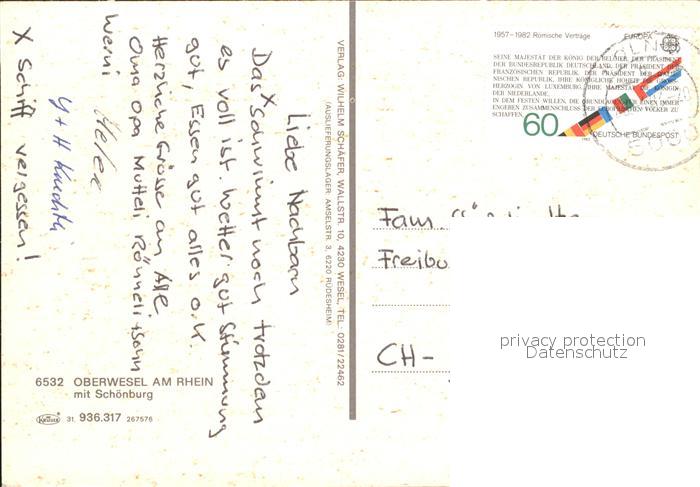 Liebe Nachbarn
Das x schwimmt noch trotzdem
es voll ist. Wetter gut Stimmung
gut, Essen gut alles o.k.
Herzliche Grüsse an Alle
Oma Opa Mutteli
Werni
Y + H
X Schiff vergessen!
6532 OBERWESEL AM RHEIN
mit Schönburg
Krüger 31. 936.317 267576
VERLAG: WILHELM SCHÄFER, WALLSTR. 10, 4230 WESEL, TEL.: 0281/22462
(AUSLIEFERUNGSLAGER: AMSELSTR. 3, 6220 RÜDESHEIM)
1957-1982 Römische Verträge EUROPA
SEINE MAJESTÄT DER KÖNIG DER BELGIER, DER PRÄSIDENT
DER BUNDESREPUBLIK DEUTSCHLAND, DER PRÄSIDENT DER
FRANZÖSISCHEN REPUBLIK, DER PRÄSIDENT DER
NISCHEN REPUBLIK, IHRE KÖNIGLICHE HOHEIT
HERZOGIN VON LUXEMBURG, IHRE MAJESTÄT DIE KÖNIGIN
DER NIEDERLANDE,
IN DEM FESTEN WILLEN, DIE GRUNDLAGEN FÜR EINEN IMMER
ENGEREN ZUSAMMENSCHLUSS DER EUROPÄISCHEN VÖLKER ZU
SCHAFFEN
60
1982
DEUTSCHE BUNDESPOST
KÖLN
500
Fam.
Freibu
CH-
privacy protection
Datenschutz